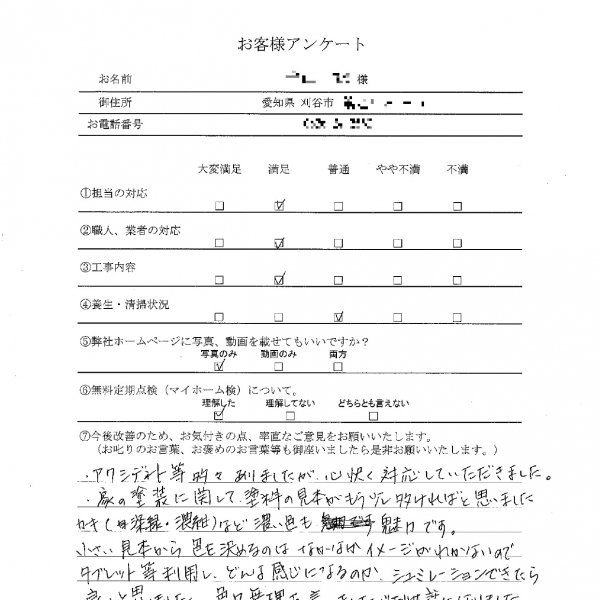 お客様アンケート
お名前 様
御住所 愛知県 刈谷市
お電話番号
大変満足 満足 普通 やや不満 不満
①担当の対応
②職人、業者の対応
③工事内容
④養生・清掃状況
⑤弊社ホームページに写真、動画を載せてもいいですか？
写真のみ 動画のみ 両方
⑥無料定期点検（マイホーム検）について。
理解した 理解してない どちらとも言えない
⑦今後改善のため、お気付きの点、率直なご意見をお願いいたします。
（お叱りのお言葉、お褒めのお言葉等も御座いましたら是非お願いいたします。）
・アクシデント等 多々 ありましたが、心快く対応していただきました。
・家の塗装に関して、塗料の見本がもう少し多ければと思いました
深緑・濃紺)など 濃い色も 魅力です。
小さい見本から色を決めるのは なかなかイメージがわかないので
タブレット等利用し、どんな感じになるのか、シュミレーションできたら
と思いました。